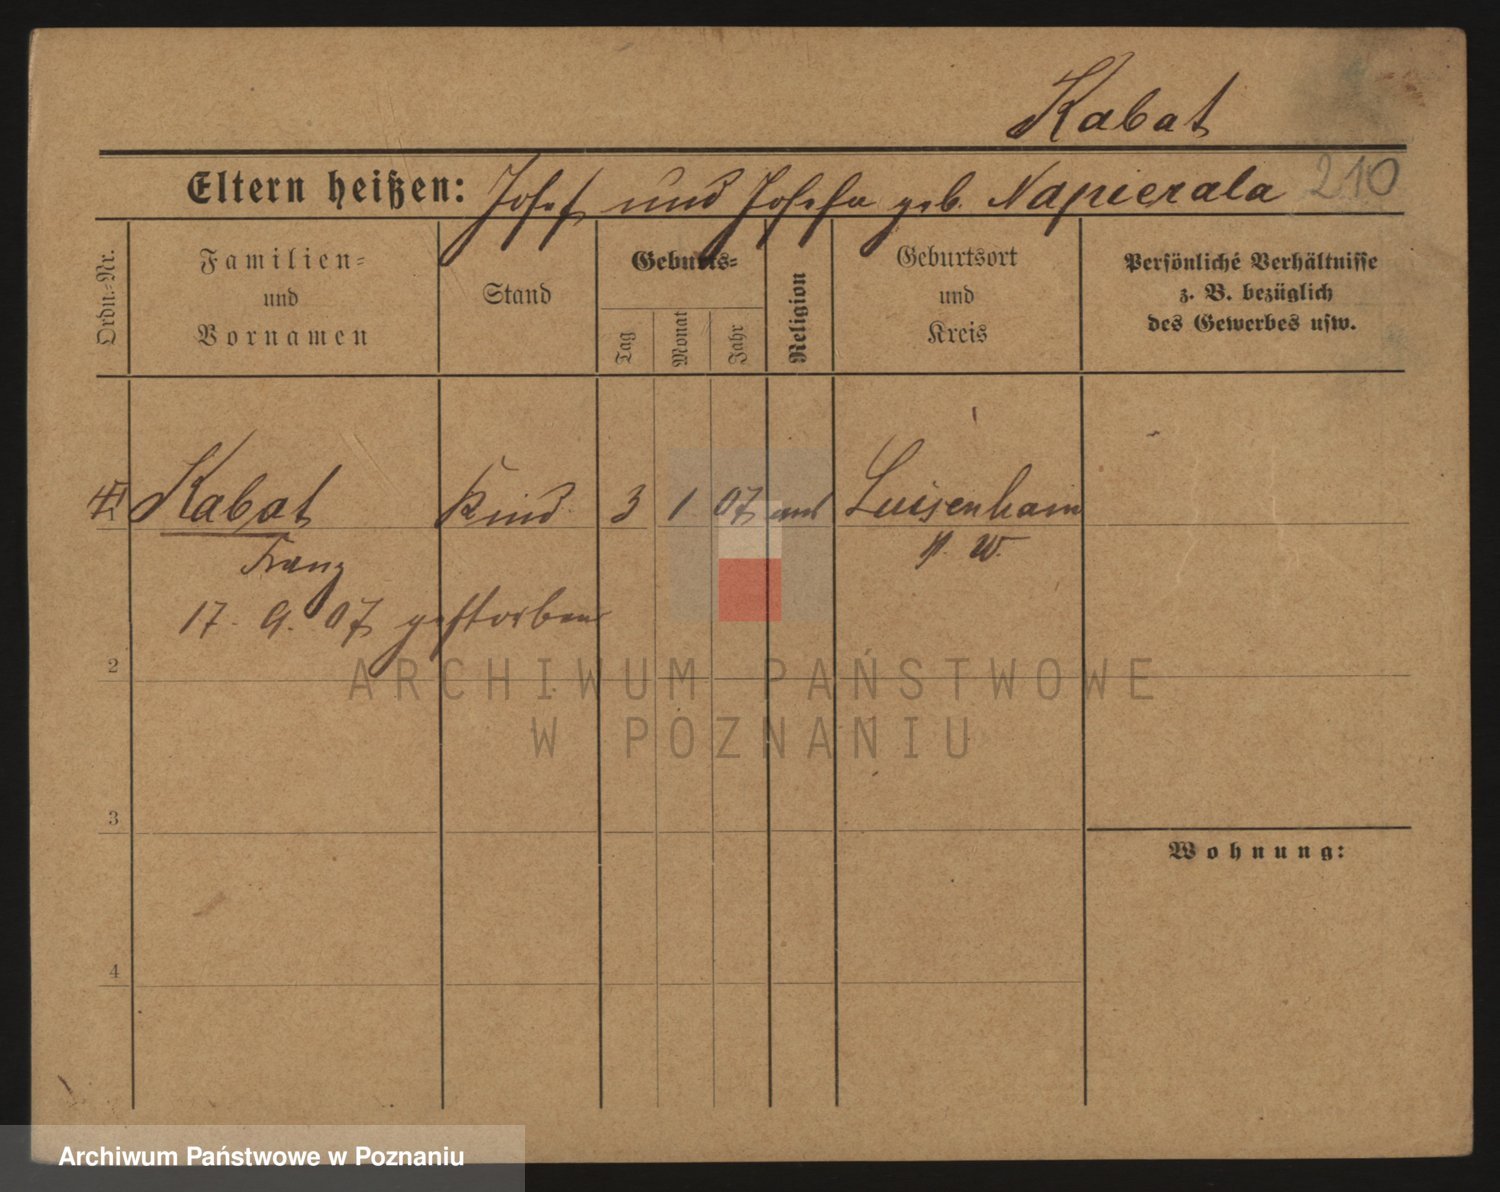 Kabat
Eltern heißen: Josef und Josefa geb. Napierala 210
Ordn.-Nr.
Familien-
und
Vornamen
Stand
Geburts-
Tag
Monat
Jahr
Religion
Geburtsort
und
Kreis
Persönliche Verhältnisse
z. B. bezüglich
des Gewerbes usw.
1 Kabat Kind 3 1 07 Luisenhain
Franz P. W.
17. 9. 07 gestorben
2
ARCHIWUM PAŃSTWOWE
W POZNANIU
3
Wohnung:
4
Archiwum Państwowe w Poznaniu